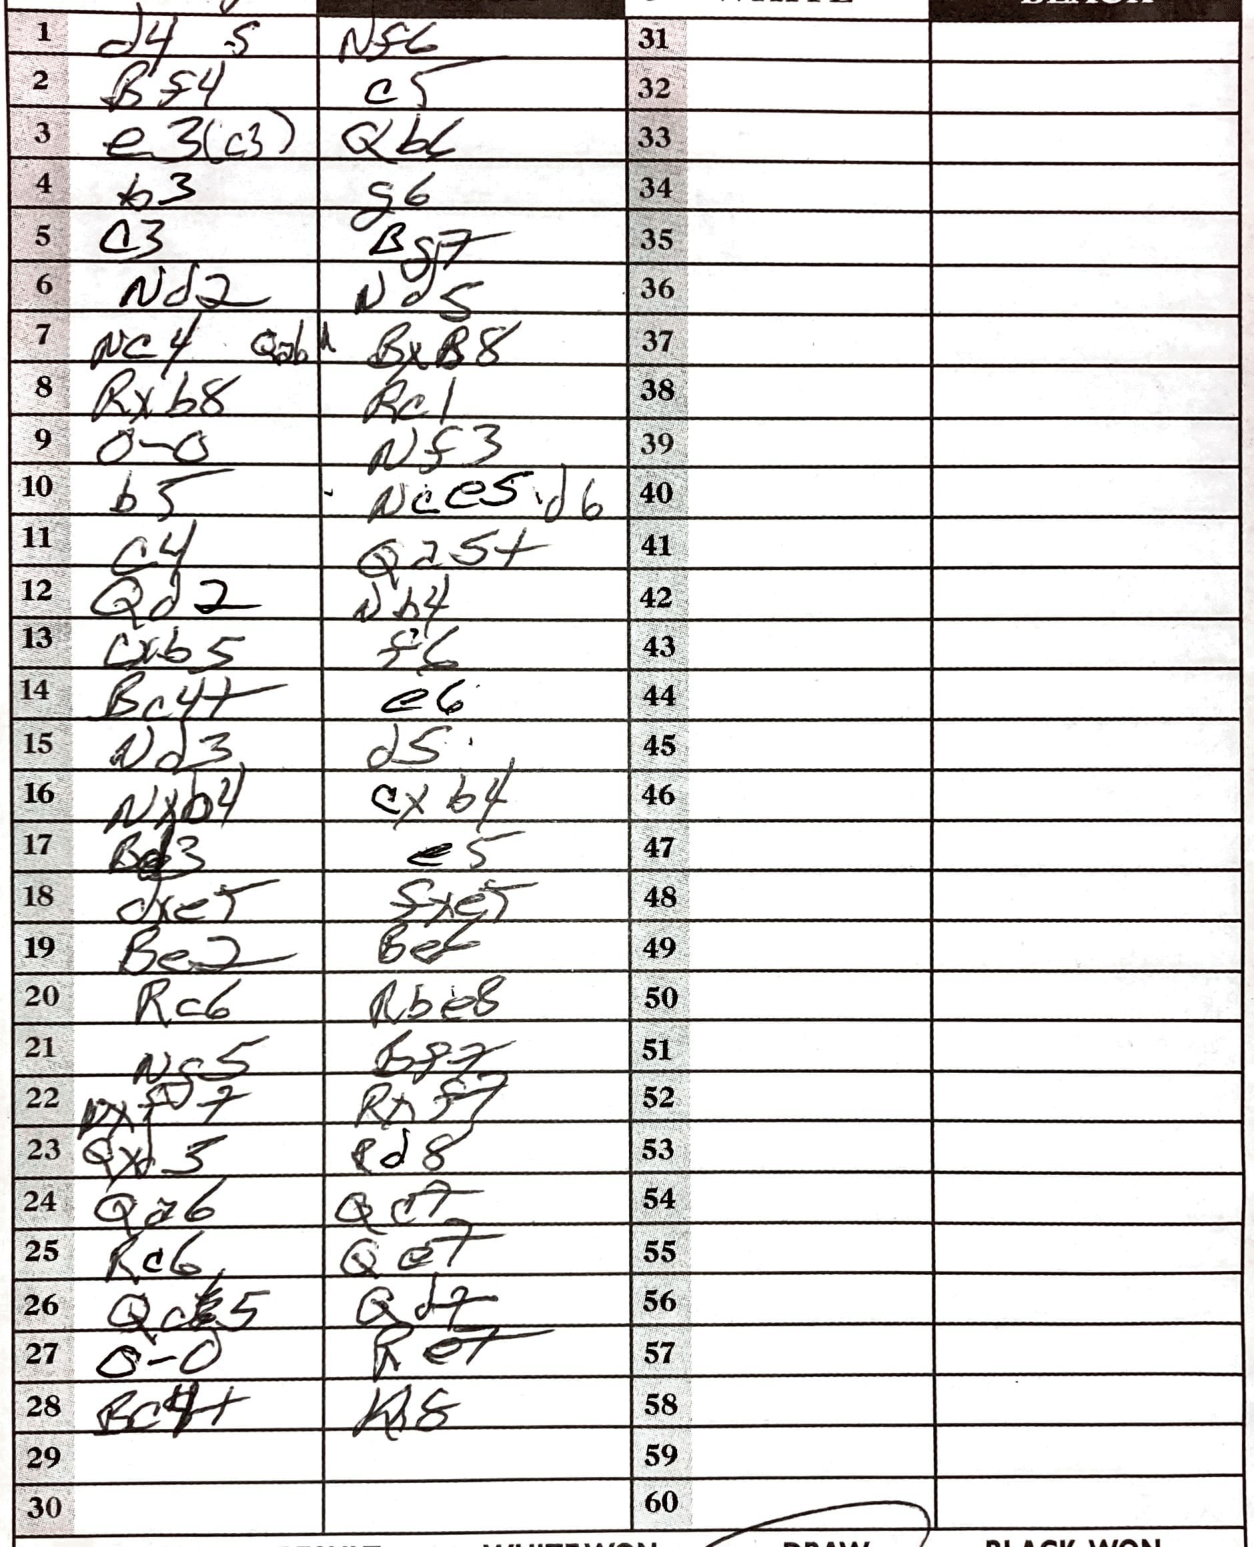 1 d4 5 Nf6 31
2 Bf4 c5 32
3 e3(c3) Qb6 33
4 b3 g6 34
5 c3 Bg7 35
6 Nd2 Nd5 36
7 Nc4 Qab BxB8 37
8 Rxb8 Rc1 38
9 0-0 Nf3 39
10 b5 Nc e5 d6 40
11 c4 Qa5+ 41
12 Qd2 Nb4 42
13 cxb5 f6 43
14 Bc4+ e6 44
15 Nd3 d5 45
16 Nxb4 cxb4 46
17 Bd3 e5 47
18 dxe5 fxe5 48
19 Be2 Be6 49
20 Rc6 Rbe8 50
21 Ng5 Bf7 51
22 Nxf7 Rxf7 52
23 Qxd5 Rd8 53
24 Qa6 Qc7 54
25 Rc6 Qe7 55
26 Qc5 Qd7 56
27 0-0 Re7 57
28 Bc4+ Kh8 58
29 59
30 60